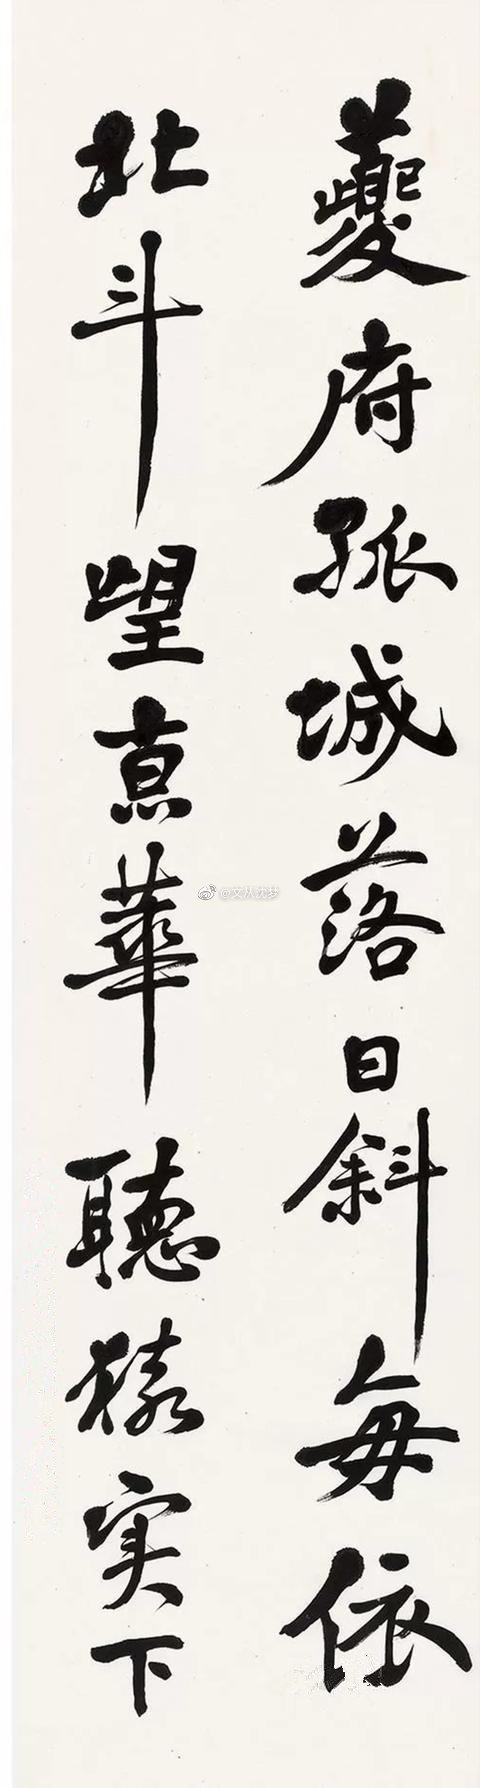 夔府孤城落日斜每依
北斗望京華聽猿实下
@文从沈梦